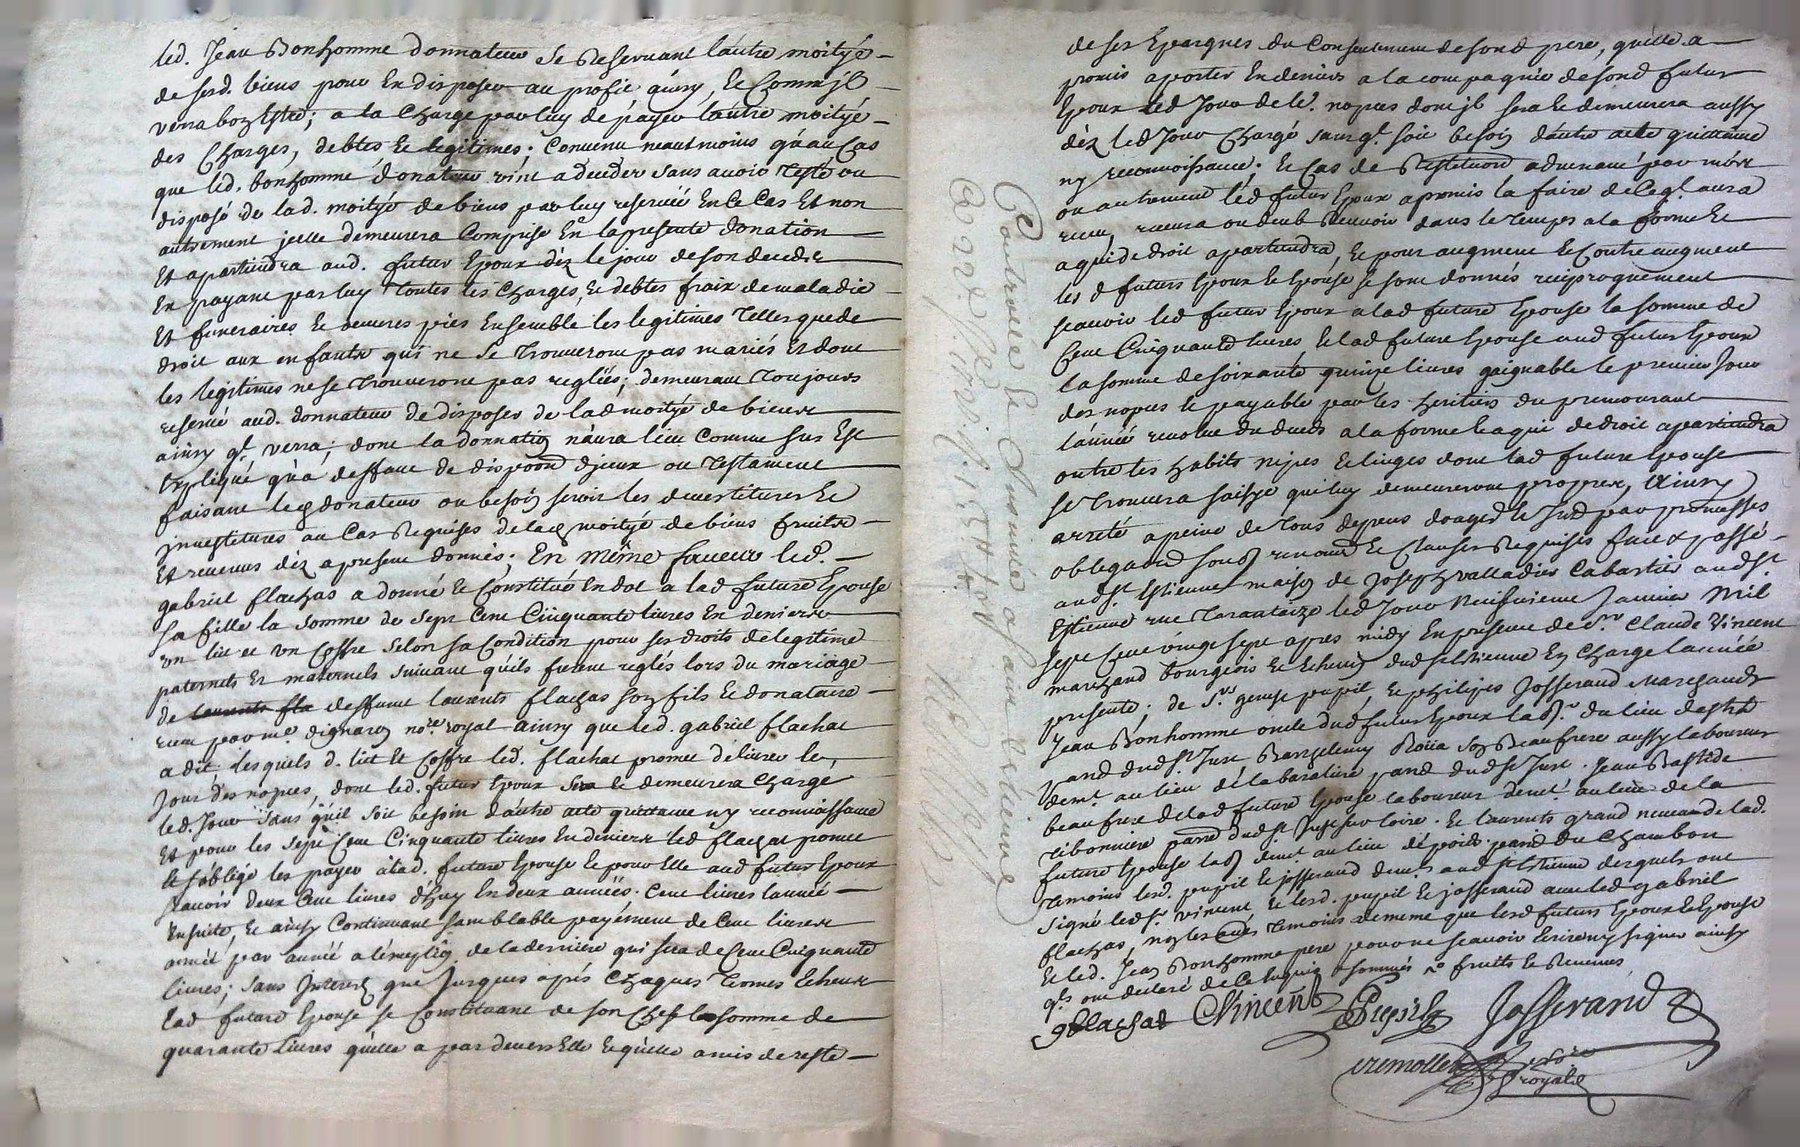 led. Jean Bonhomme donnateur se Reservant l'autre moityé
de sesd. biens pour en disposer au profit ainsy, et Comm' jl
verra bon estre; a la Charge par luy de payer l'autre moityé
des Charges, debtes et legitimes. Convenu neantmoins qu'au Cas
que led. bonhomme donateur vint a deceder sans avoir testé ou
disposé de lad. moityé de biens par luy reservée En Ce Cas Et non
autrement jcelle demeurera Comprise En la presente donation
Et apartiendra aud. futur Epoux dez le jour de son decedz
En payant par luy toutes les Charges, et debtes fraix de maladie
Et funeraires et oeuvres pies Ensemble les legitimes telles que de
droit aux enfants qui ne se trouveront pas mariés Et dont
les legitimes ne se trouveront pas reglées; demeurant toujours
reservé aud. donnateur de disposer de lad moityé de biens
ainsy ql. verra; dont la donnation n'aura lieu Comme sus Est
Expliqué qu'a deffaut de dispoon d'jceux ou testament
faisant led donateur au besoin servir les devestitures et
jnvestitures au Cas Requises de lad moityé de biens fruits
Et revenus dèz a present donnés; En même faveur led.
gabriel flachas a donné et Constitué En dot a lad future Epouse
sa fille la somme de sept Cent Cinquante livres En deniers
un lit et un Coffre selon sa Condition pour ses droits de legitime
paternels Et maternels suivant qu'ils furent reglés lors du mariage
de deffunt laurents flachas son fils et donataire
receu par me. dignaron nore. royal ainsy que led. gabriel flachat
a dit, lesquels d. lict et Coffre led. flachat promet delivrer le
Jour des nopces, dont led. futur Epoux sera et demeurera Chargé
led. Jour sans qu'il soit besoin d'autre acte quittance ny reconnoissance
Et pour les sept Cent Cinquante livres En deniers led flachat promet
et s'oblige les payer a lad. future Epouse et pour Elle aud futur Epoux
scavoir deux Cent livres d'huy En deux années. Cent livres l'année
Ensuite et ainsy Continuant semblable payement de Cent livres
année par année a l'exception de la derniere qui sera de Cent Cinquante
livres; sans Jnterest que Jusques après Chaques termes Echeus
Lad future Epouse se Constituant de son Chef la somme de
quarante livres qu'elle a par devers Elle et qu'elle a mis de reste
de ses Epargnes du Consentement de sond pere, qu'elle a
promis aporter En deniers a la compagnie de sond futur
Epoux led Jour de le. nopces dont jl sera et demeurera aussy
dèz led Jour Chargé sans ql. soit besoin d'autre acte quittance
ny reconnoissance; Et Cas de Restitution advenant par mort
ou autrement led futur Epoux a promis la faire de Ce ql. aura
receu, recevra ou deub Recevoir dans le temps a la forme et
a qui de droit apartiendra, Et pour augment et Contre augment
les d futurs Epoux et Epouse se sont donnés reciproquement
scavoir led futur Epoux a lad future Epouse la somme de
Cent Cinquante livres et lad future Epouse aud futur Epoux
la somme de soixante quinze livres gaignable le premier Jour
des nopces et payable par les heritiers du premourant
l'année revolue du dueil a la forme et a qui de droit apartiendra
outre les habits nipes et linges dont lad future Epouse
se trouvera saisye qui luy demeureront propres, Ainsy
arreté a peine de tous depens domages et Jnd par promesses
obligaond sousd renoncd Et Clauses Requises fait & passé
aud st. Estienne maison de Joseph valladier Cabartier aud st
Estienne rue tarantaize led Jour Neufvieme Janvier Mil
sept Cent vingt sept apres midy En presence de sr. Claude Vincent
marchand bourgeois et Echevin dud st Estienne En Charge l'année
presente; de srs. pupil, et philipes Josserand Marchands
Jean Bonhomme oncle dud futur Epoux labr. du lieu
pand dud st Just Barthelemy Roüa son Beaufrere aussy laboureur
demt. au lieu de la baraliere, pand dud st Just. Jean Bastide
beaufrere de lad future Epouse laboureur demt. au lieu de la
ribonniere pand dud st Just sur loire. Et laurents grand neveu de lad.
future Epouse labr demt. au lieu pand du Chambon
temoins lesd. pupil et josserand demts. aud st Estienne desquels ont
signé led sr. vincent Et lesd. pupil et josserand avec led gabriel
flachas, non les autres temoins de meme que lesd futurs Epoux et Epouse
Et led. Jean Bonhomme pere pour ne scavoir Ecrire ny signer ainsy
qls. ont declaré de Ce Enquis & sommés fruits et Revenus
gflachat CVincent Pupil Josserand
Tremollet nore
royal
Controllé et Insinué a saint Estienne